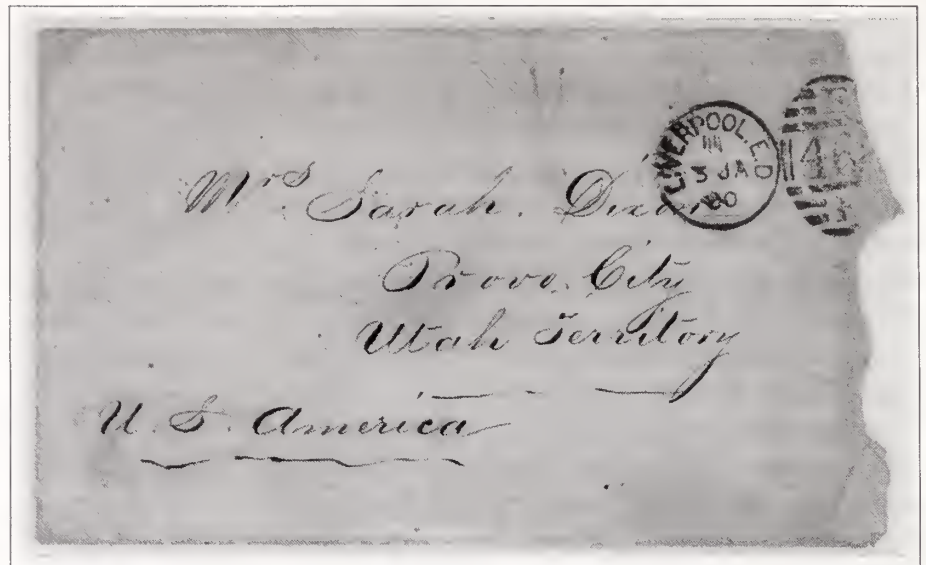 LIVERPOOL. E.D
3 JA
80
46
Mrs. Sarah. Dixon
Provo. City
Utah Territory
U. S. America